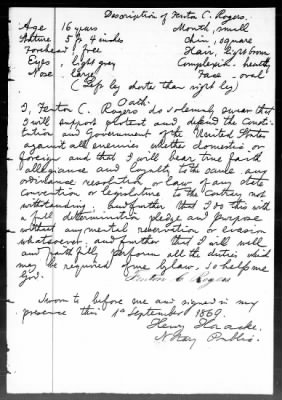 Description of Fenton C. Rogers.
Age 16 years Mouth, small
Stature 5 ft 4 inches Chin, square
Forehead, free Hair, light brown
Eyes, light grey Complexion, healthy
Nose large Face, oval
(Left leg shorter than right leg)
Oath.
I, Fenton C. Rogers do solemnly swear that
I will support protect and, defend the Consti-
tution and Government of the United States
against all enemies whether domestic or
foreign and that I will bear true faith
allegiance and loyalty to the same any
ordinance resolution or law of any state
convention or legislature to the contrary not
withstanding. And further that I do this with
a full determination pledge and purpose
without any mental reservation or evasion
whatsoever, and further that I will well
and faithfully perform all the duties which
may be required of me by law, so help me
God.
Fenton C Rogers
Sworn to before me and signed in my
presence this 1st September 1869.
Henry
Notary Public.